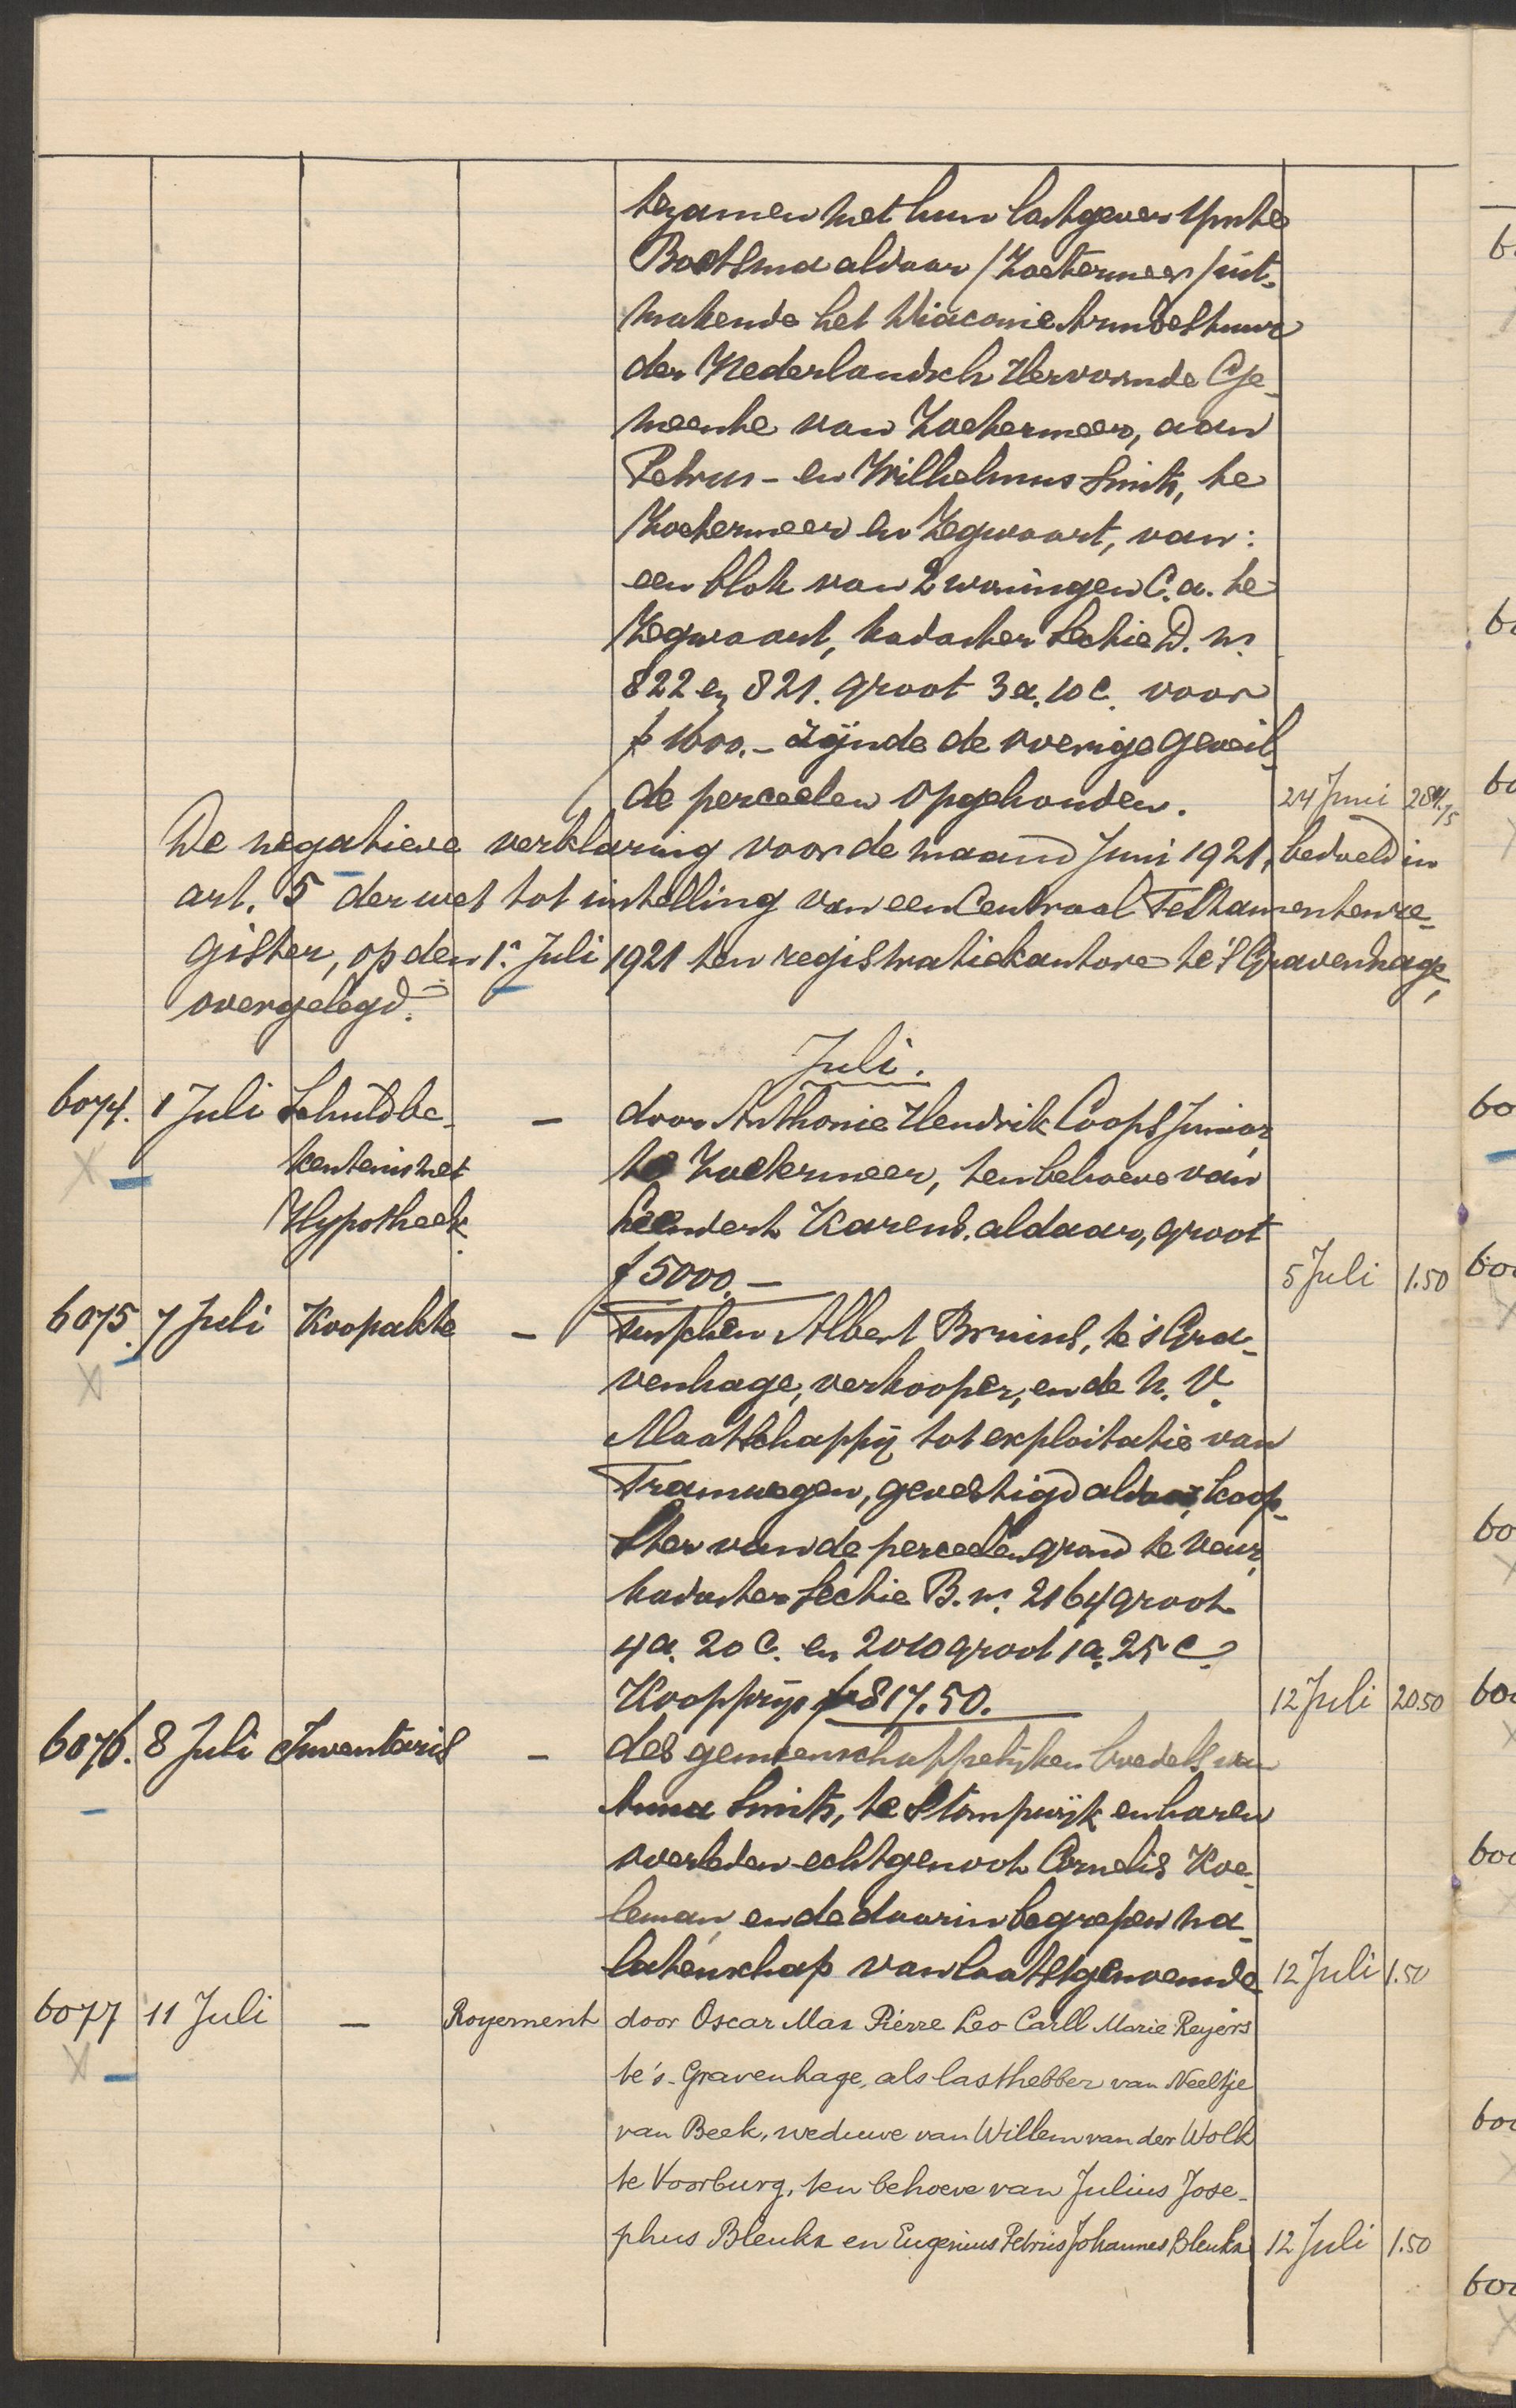 tezamen met hun lastgever Ynte
Bootsma aldaar /Zoetermeer/ uit-
makende het Diaconie Armbestuur
der Nederlandsch Hervormde Ge-
meente van Zoetermeer, aan
Petrus- en Wilhelmus Smits, te
Zoetermeer en Zegwaart, van:
een blok van 2 woningen C.a. te
Zegwaart, kadaster Sectie D. nr.
822 en 821. groot 3 a. 10 c. voor
f 1600.- zijnde de overige geveil-
de perceelen opgehouden. 24 Juni 284.75
De negatieve verklaring voor de maand Juni 1921, bedoeld in
art. 5 der wet tot instelling van een Centraal Testamentenre-
gister, op den 1n. Juli 1921 ten registratiekantore te 's Gravenhage,
overgelegd.
Juli.
6074. 1 Juli Schuldbe- — door Anthonie Hendrik Coops Junior,
X kentenis met te Zoetermeer, ten behoeve van
Hypotheek. Leendert Karens. aldaar, groot
f 5000.— 5 Juli 1.50
6075. 7 Juli Koopakte — tusschen Albert Bruins, te 's Gra-
X venhage, verkooper, en de N. V.
Maatschappij tot exploitatie van
Tramwegen, gevestigd aldaar, koop-
ster van de perceelen grond te Veur,
kadaster Sectie B. nr. 2164 groot
4 a. 20 c. en 2010 groot 1 a. 25 c.
Koopprijs f 817.50. 12 Juli 20.50
6076. 8 Juli Inventaris — des gemeenschappelijken boedels van
Anna Smits, te Stompwijk en haren
overleden echtgenoot Cornelis Koe-
leman, en de daarin begrepen na-
latenschap van laatstgenoemde 12 Juli 1.50
6077 11 Juli — Royement door Oscar Max Pierre Leo Carll Marie Reijers
X te 's-Gravenhage, als lasthebber van Neeltje
van Beek, weduwe van Willem van der Wolk
te Voorburg, ten behoeve van Julius Jose-
phus Blenks en Eugenius Petrus Johannes Blenks 12 Juli 1.50